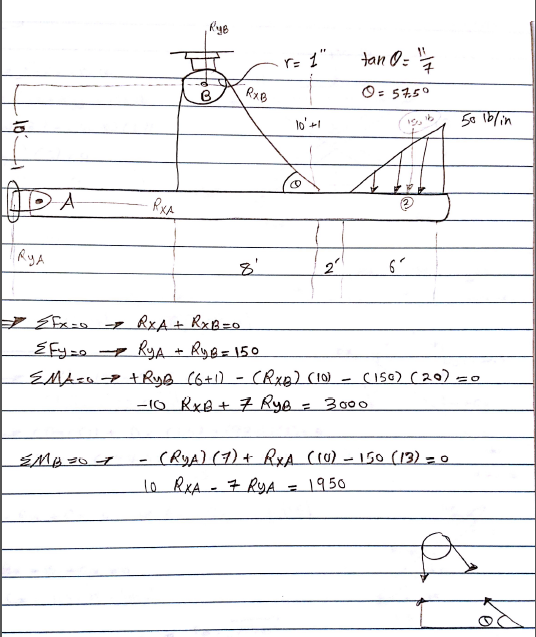 RyB
r= 1"
tan θ = 11/7
θ = 57.5°
B
RxB
10'+1
150 lb
50 lb/in
10'
θ
2
A
RxA
RyA
8'
2'
6'
⇒ ΣFx=0 → RxA + RxB=0
ΣFy=0 → RyA + RyB = 150
ΣMA=0 → +RyB (6+1) - (RxB) (10) - (150) (20) = 0
-10 RxB + 7 RyB = 3000
ΣMB=0 → - (RyA) (7) + RxA (10) - 150 (13) = 0
10 RxA - 7 RyA = 1950
θ